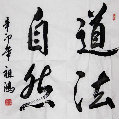 道法
自然
辛卯年 祖鸿